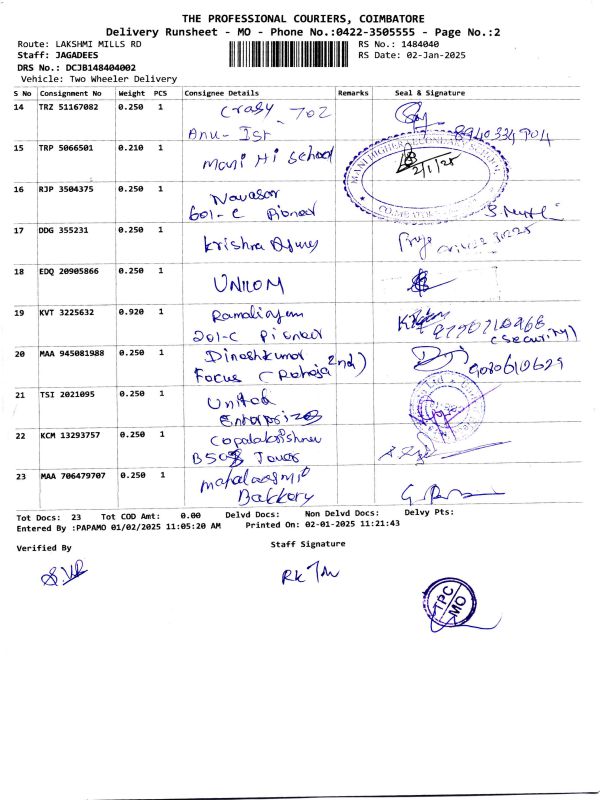 THE PROFESSIONAL COURIERS, COIMBATORE
Delivery Runsheet - MO - Phone No.:0422-3505555 - Page No.:2
Route: LAKSHMI MILLS RD RS No.: 1484040
Staff: JAGADEES RS Date: 02-Jan-2025
DRS No.: DCJB148404002
Vehicle: Two Wheeler Delivery
S No Consignment No Weight PCS Consignee Details Remarks Seal & Signature
14 TRZ 51167082 0.250 1 702
Anu-
15 TRP 5066501 0.210 1 Mani Hi School
MANI HIGHER SECONDARY SCHOOL
2/1/25
16 RJP 3504375 0.250 1
601-C Pioneer
17 DDG 355231 0.250 1 Krishna
18 EDQ 20905866 0.250 1
19 KVT 3225632 0.920 1
201-C Pioneer (Security)
20 MAA 945081988 0.250 1 Dineshkumar
Focus
21 TSI 2021095 0.250 1 United
Enterprizes
22 KCM 13293757 0.250 1
Tower
23 MAA 706479707 0.250 1
Bakkery
Tot Docs: 23 Tot COD Amt: 0.00 Delvd Docs: Non Delvd Docs: Delvy Pts:
Entered By :PAPAMO 01/02/2025 11:05:20 AM Printed On: 02-01-2025 11:21:43
Verified By Staff Signature
TPC
MO